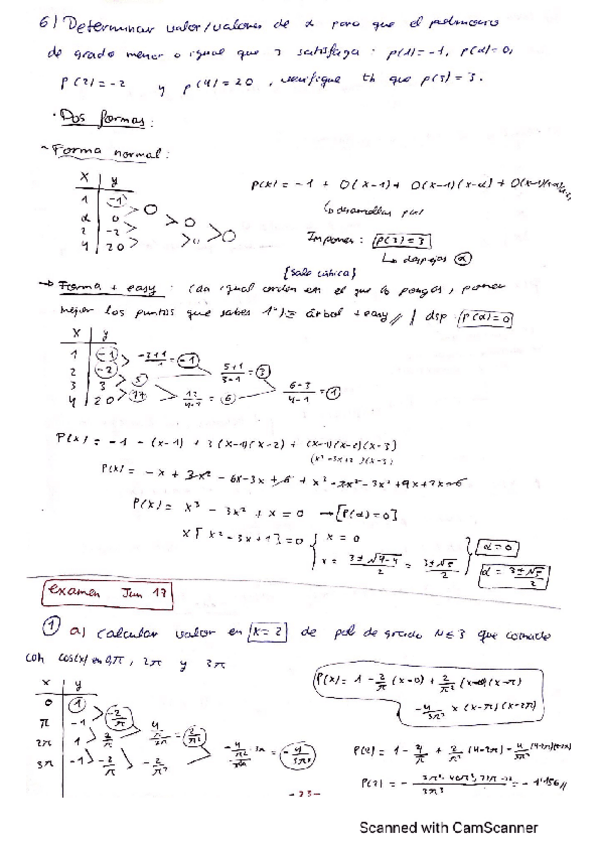 6) Determinar valor/valores de α para que el polinomio
de grado menor o igual que 3 satisfaga: p(1)=-1, p(α)=0,
p(2)=-2 y p(4)=20, verifique tb que p(3)=3.
· Dos formas:
~ Forma normal:
x y
1 -1
α 0 > 0
2 -2 > 0
4 20 > 0 > 0
p(x) = -1 + 0(x-1) + 0(x-1)(x-α) + 0(x-1)
↳ desarrollar p(x)
Imponer: p(3)=3
↳ despejas α
{sale cúbica}
→ Forma + easy: (da igual orden en el que lo pongas, poner
mejor los puntos que sabes 1º) = árbol + easy // dsp: p(α)=0
x y
1 -1 > -2+1/ = -1
2 -2 > 5 5+1/3-1 = 3
3 3 > 17 12/4-2 = 6 6-3/4-1 = 1
4 20
P(x) = -1 - (x-1) + 3(x-1)(x-2) + (x-1)(x-2)(x-3)
(x²-3x+2)(x-3)
P(x) = -x + 3x² - 6x-3x + 6 + x³ - 3x² - 3x² + 9x + 2x - 6
P(x) = x³ - 3x² + x = 0 → [P(α)=0]
x[x²-3x+1]=0 { x = 0
x = 3±√9-4/2 = 3±√5/2
α=0
α = 3±√5/2
examen Jun 17
① a) calcular valor en x=2 de pol de grado N≤3 que
con cos(x) en 0, π, 2π y 3π
x y
0 1 > -2/π
π -1 > 2/π = 2/π²
2π 1 > -2/π > -2/π² = -4/3π³
3π -1
P(x) = 1 - 2/π (x-0) + 2/π² (x-0)(x-π)
-4/3π³ x (x-π)(x-2π)
P(2) = 1 - 4/π + 2/π² (4-2π) - 4/3π³
P(2) = - /3π³ = -1'156//
-23-
Scanned with CamScanner